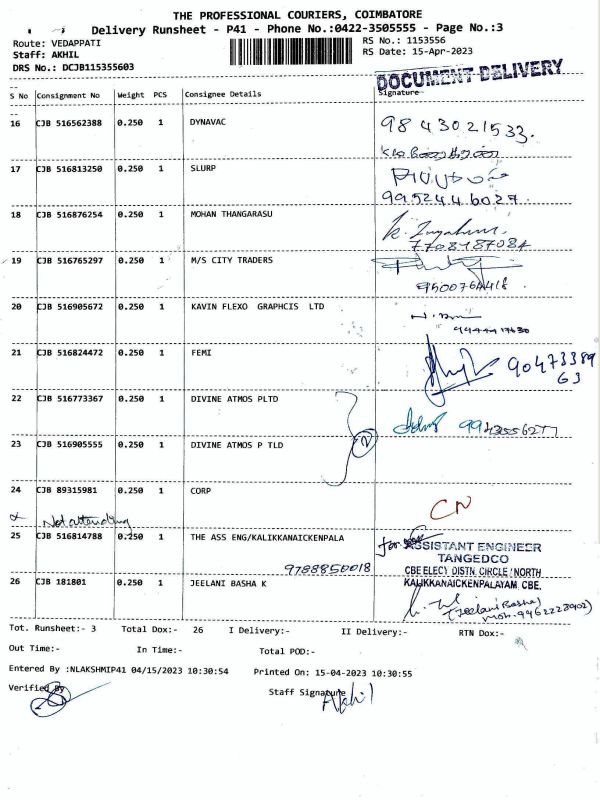 THE PROFESSIONAL COURIERS, COIMBATORE
Delivery Runsheet - P41 - Phone No.:0422-3505555 - Page No.:3
Route: VEDAPPATI
RS No.: 1153556
Staff: AKHIL
RS Date: 15-Apr-2023
DRS No.: DCJB115355603
DOCUMENT DELIVERY
S No Consignment No Weight PCS Consignee Details Signature
16 CJB 516562388 0.250 1 DYNAVAC 9843021533.
17 CJB 516813250 0.250 1 SLURP
9952446027.
18 CJB 516876254 0.250 1 MOHAN THANGARASU
7708187084
19 CJB 516765297 0.250 1 M/S CITY TRADERS
9500764418
20 CJB 516905672 0.250 1 KAVIN FLEXO GRAPHCIS LTD
21 CJB 516824472 0.250 1 FEMI 90473389
63
22 CJB 516773367 0.250 1 DIVINE ATMOS PLTD
23 CJB 516905555 0.250 1 DIVINE ATMOS P TLD
2
24 CJB 89315981 0.250 1 CORP
CN
Not attending
25 CJB 516814788 0.250 1 THE ASS ENG/KALIKKANAICKENPALA
for ASSISTANT ENGINEER
TANGEDCO
9788850018
CBE ELECY DISTN. CIRCLE / NORTH
KALIKKANAICKENPALAYAM, CBE.
26 CJB 181801 0.250 1 JEELANI BASHA K
(Jeelani Basha)
mob: 9962228902)
Tot. Runsheet:- 3 Total Dox:- 26 I Delivery:- II Delivery:- RTN Dox:-
Out Time:- In Time:- Total POD:-
Entered By :NLAKSHMIP41 04/15/2023 10:30:54 Printed On: 15-04-2023 10:30:55
Verified By Staff Signature Akhil